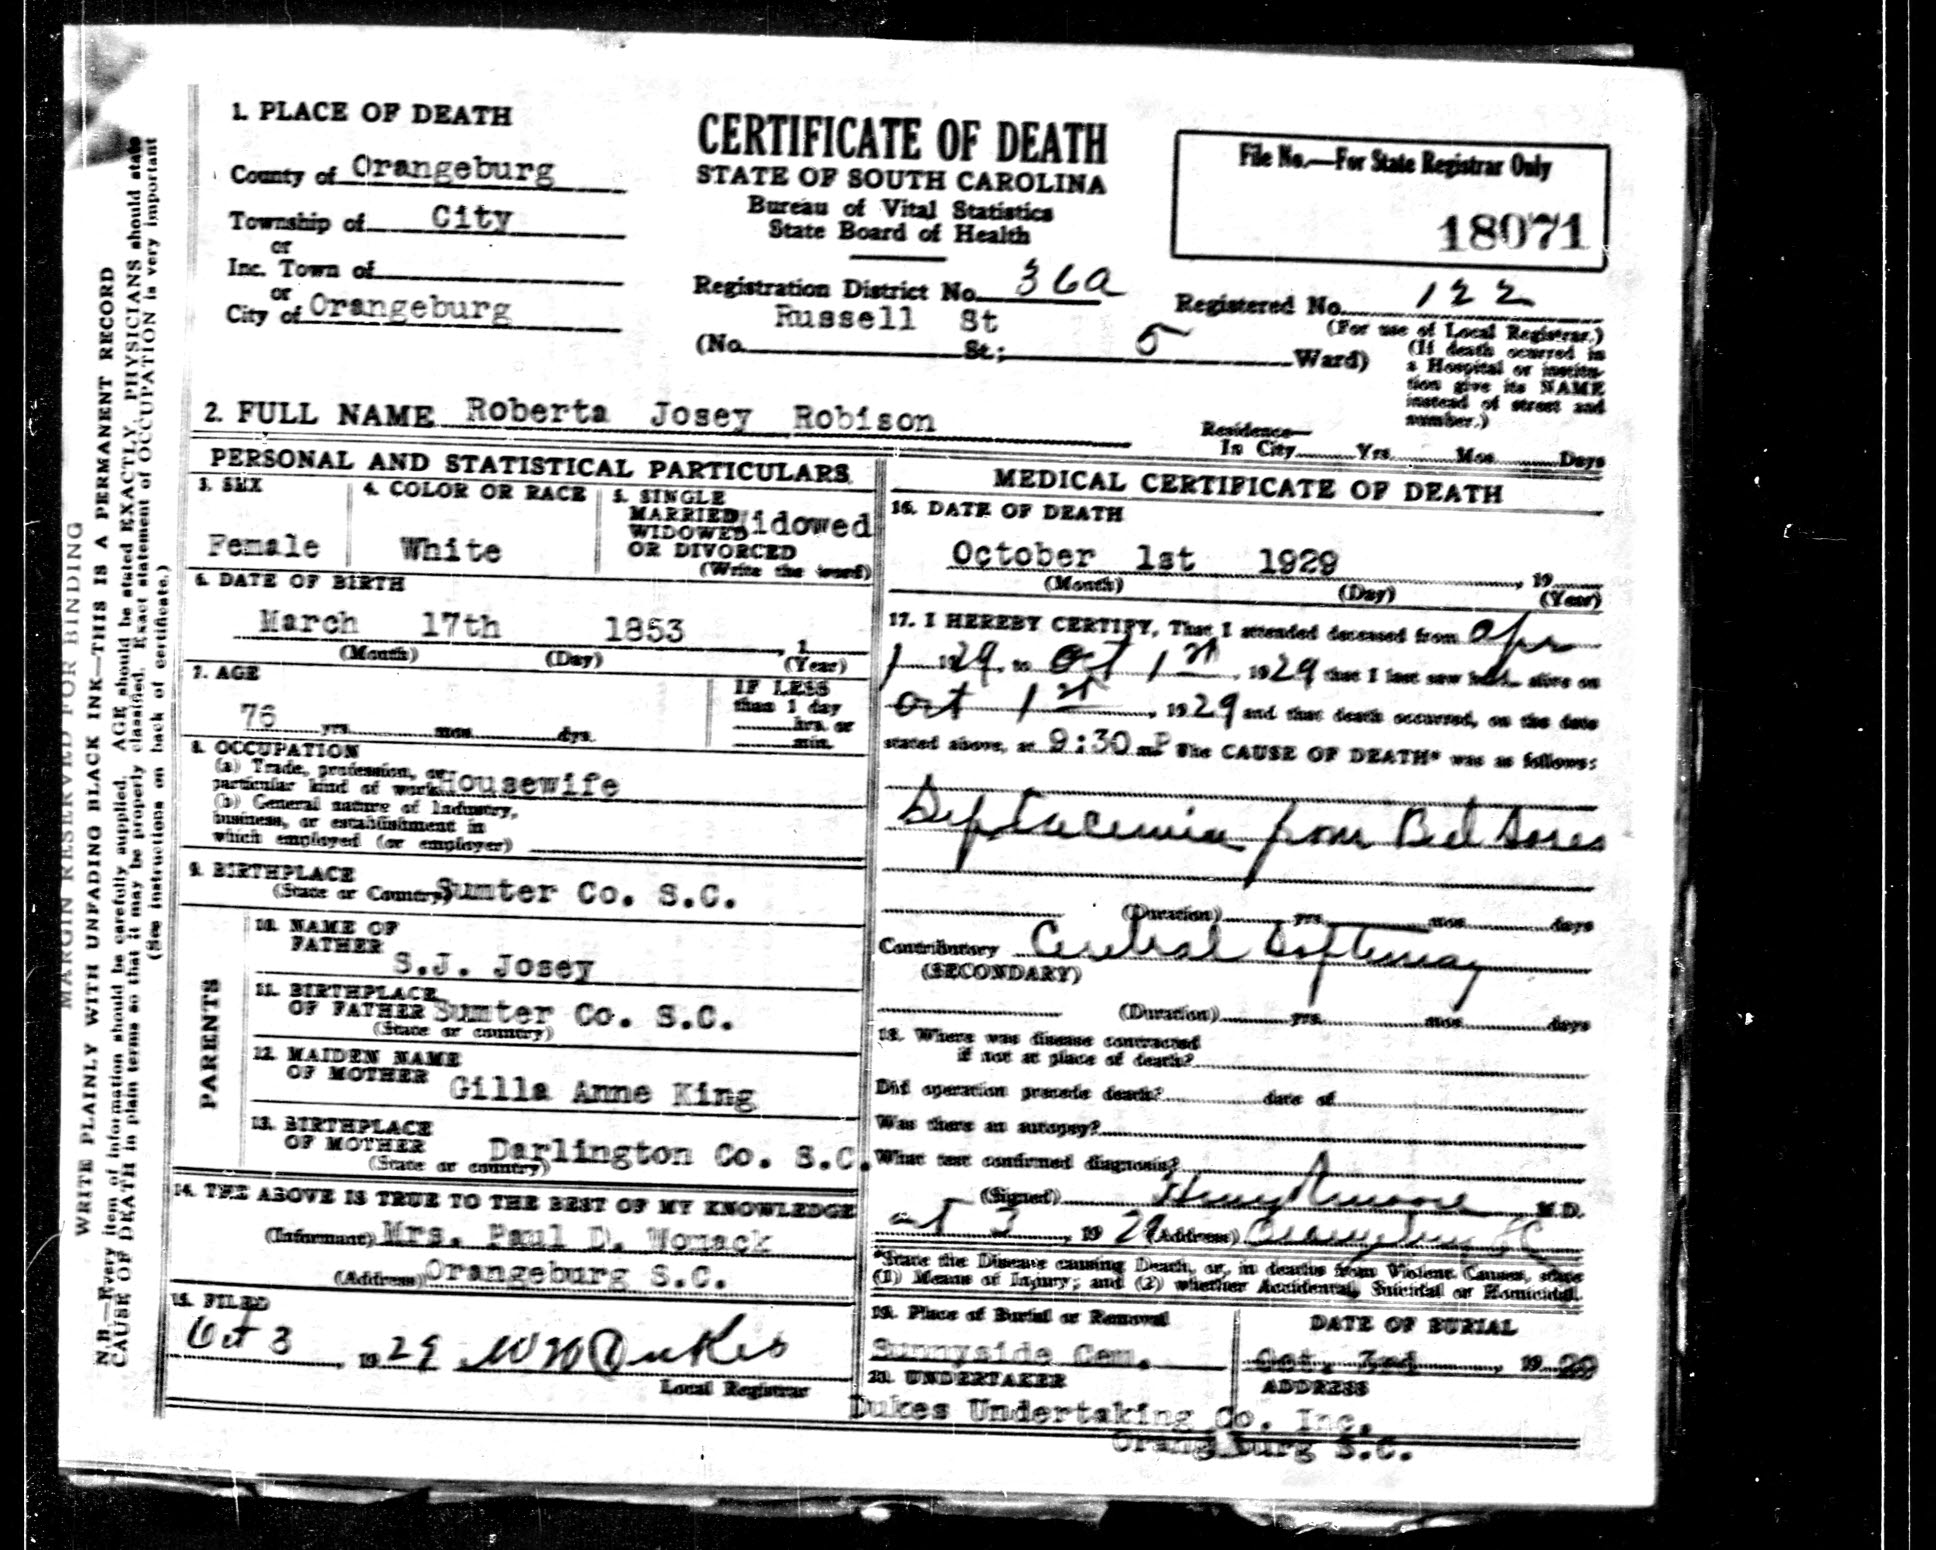 1. PLACE OF DEATH
County of Orangeburg
Township of City
or
Inc. Town of
or
City of Orangeburg
CERTIFICATE OF DEATH
STATE OF SOUTH CAROLINA
Bureau of Vital Statistics
State Board of Health
Registration District No. 36a
Russell St
(No. St.; 5 Ward)
File No.—For State Registrar Only
18071
Registered No. 122
(For use of Local Registrar.)
(If death ocurred in
a Hospital or institu-
tion give its NAME
instead of street and
number.)
2. FULL NAME Roberta Josey Robison
Residence—
In City Yrs. Mos. Days
PERSONAL AND STATISTICAL PARTICULARS
3. SEX
Female
4. COLOR OR RACE
White
5. SINGLE
MARRIED
WIDOWED
OR DIVORCED
Widowed
(Write the word)
6. DATE OF BIRTH
March 17th 1853 , 1
(Month) (Day) (Year)
7. AGE
76 yrs. mos. dys.
IF LESS
than 1 day
hrs. or
min.
8. OCCUPATION
(a) Trade, profession, or
particular kind of work Housewife
(b) General nature of Industry,
business, or establishment in
which employed (or employer)
9. BIRTHPLACE
(State or Country) Sumter Co. S.C.
PARENTS
10. NAME OF
FATHER
S.J. Josey
11. BIRTHPLACE
OF FATHER Sumter Co. S.C.
(State or country)
12. MAIDEN NAME
OF MOTHER Gilla Anne King
13. BIRTHPLACE
OF MOTHER Darlington Co. S.C.
(State or country)
14. THE ABOVE IS TRUE TO THE BEST OF MY KNOWLEDGE
(Informant) Mrs. Paul D. Womack
(Address) Orangeburg S.C.
15. FILED
Oct 3 , 1929 W W Dukes
Local Registrar
MEDICAL CERTIFICATE OF DEATH
16. DATE OF DEATH
October 1st 1929 , 19
(Month) (Day) (Year)
17. I HEREBY CERTIFY, That I attended deceased from Apr
1 1929, to Oct 1st , 1929 that I last saw her alive on
Oct 1st , 1929 and that death occurred, on the date
stated above, at 9:30 m P The CAUSE OF DEATH* was as follows:
Septacemia from Bed Sores
(Duration) yrs. mos. days
Contributory Cerebral Softening
(SECONDARY)
(Duration) yrs. mos. days
18. Where was disease contracted
if not at place of death?
Did operation precede death? date of
Was there an autopsy?
What test confirmed diagnosis?
(Signed) M.D.
Oct 3 , 1929 (Address) Orangeburg SC
*State the Disease causing Death, or, in deaths from Violent Causes, state
(1) Means of Injury; and (2) whether Accidental, Suicidal or Homicidal.
19. Place of Burial or Removal
Sunnyside Cem.
DATE OF BURIAL
Oct. 3rd , 1929
20. UNDERTAKER
ADDRESS
Dukes Undertaking Co. Inc.
Orangeburg S.C.
MARGIN RESERVED FOR BINDING
WRITE PLAINLY WITH UNFADING BLACK INK—THIS IS A PERMANENT RECORD
N.B.—Every item of information should be carefully supplied. AGE should be stated EXACTLY. PHYSICIANS should state
CAUSE OF DEATH in plain terms so that it may be properly classified. Exact statement of OCCUPATION is very important
(See instructions on back of certificate.)